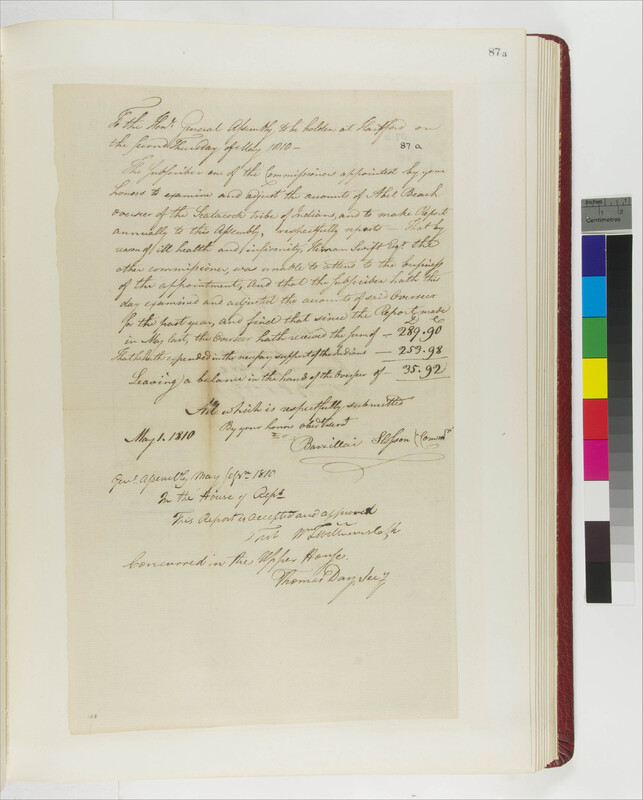 87a
To the Honl. General Assembly, to be holden at Hartford on
the second Thursday of May 1810 –
87 a
The subscriber one of the Commissioners appointed by your
honors to examine and adjust the accounts of Abil Beach
overseer of the Scatacook Tribe of Indians, and to make Report
annually to this Assembly, respectfully reports – That by
reason of ill health and infirmity, Heman Swift Esqr. the
other commissioner, was unable to attend to the business
of the appointment, and that the subscriber hath this
day examined and adjusted the accounts of said Overseer
for the past year, and find that since the Report made
in May last, the Overseer hath received the sum of – 289.90
That he hath expended in the necessary support of the Indians – 253.98
Leaving a balance in the hand of the Overseer of – 35.92
All which is respectfully submitted
By your honors obedt Servt
May 1. 1810
Barzillai Slosson Commr.
Genl. Assembly May Sessn. 1810
In the House of Reps.
This Report is accepted and approved
Test Wm
Concurred in the Upper House.
Thomas Day Secy
Inches
1
2
Centimetres